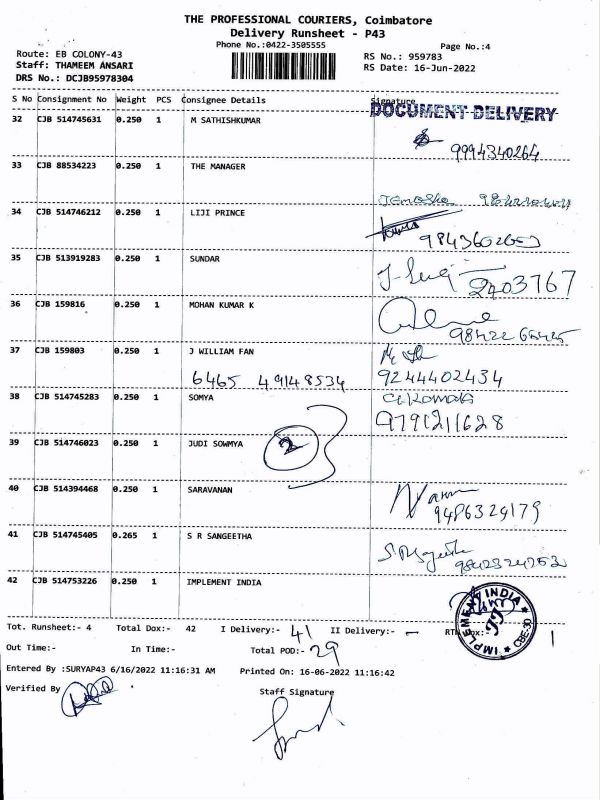 THE PROFESSIONAL COURIERS, Coimbatore
Delivery Runsheet - P43
Phone No.:0422-3505555
Page No.:4
Route: EB COLONY-43
RS No.: 959783
Staff: THAMEEM ANSARI
RS Date: 16-Jun-2022
DRS No.: DCJB95978304
S No Consignment No Weight PCS Consignee Details Signature
DOCUMENT DELIVERY
32 CJB 514745631 0.250 1 M SATHISHKUMAR
9994340264
33 CJB 88534223 0.250 1 THE MANAGER
34 CJB 514746212 0.250 1 LIJI PRINCE
35 CJB 513919283 0.250 1 SUNDAR
2403767
36 CJB 159816 0.250 1 MOHAN KUMAR K
37 CJB 159803 0.250 1 J WILLIAM FAN
6465 49148534 9244402434
38 CJB 514745283 0.250 1 SOMYA
9791211628
39 CJB 514746023 0.250 1 JUDI SOWMYA
2
40 CJB 514394468 0.250 1 SARAVANAN
9486329179
41 CJB 514745405 0.265 1 S R SANGEETHA
42 CJB 514753226 0.250 1 IMPLEMENT INDIA
IMPLEMENT INDIA CBE-30
Tot. Runsheet:- 4 Total Dox:- 42 I Delivery:- 41 II Delivery:- – 1
Out Time:- In Time:- Total POD:- 29
Entered By :SURYAP43 6/16/2022 11:16:31 AM Printed On: 16-06-2022 11:16:42
Verified By Staff Signature